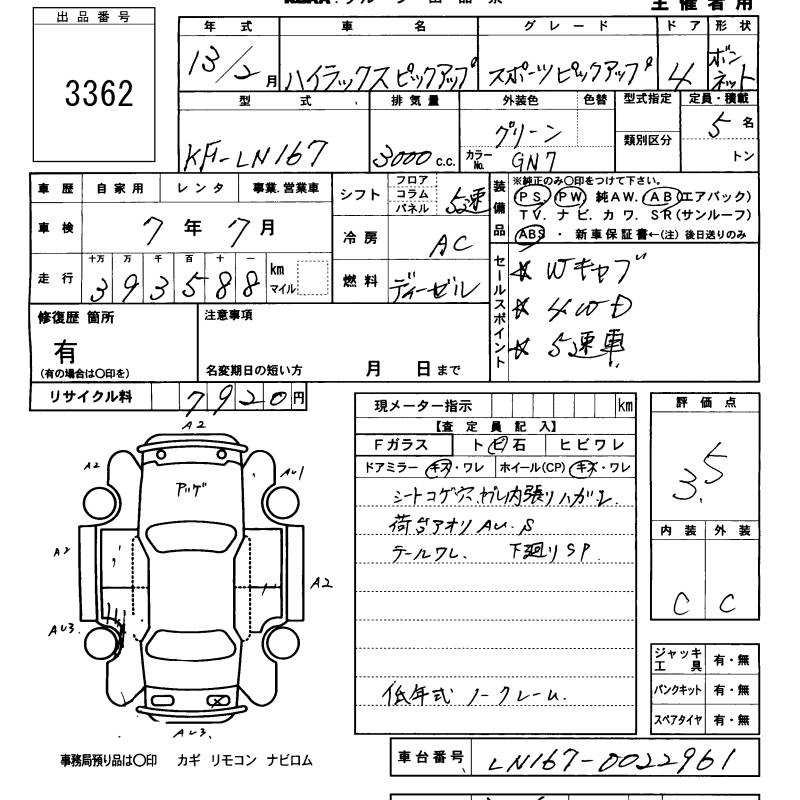 主催者用
出品番号
3362
年式 車名 グレード ドア 形状
13/2月 ハイラックスピックアップ スポーツピックアップ 4 ボンネット
型式 排気量 外装色 色替 型式指定 定員・積載
KH-LN167 3000c.c. グリーン 5名
カラーNo. GN7 類別区分 トン
車歴 自家用 レンタ 事業.営業車
シフト フロア コラム パネル 5速
車検 7年7月
冷房 AC
走行 十万 万 千 百 十 一
393588 km マイル
燃料 ディーゼル
装備品 ※純正のみ〇印をつけて下さい。
PS PW 純AW. AB(エアバック)
TV. ナビ. カワ. SR(サンルーフ)
ABS ・ 新車保証書←(注) 後日送りのみ
セールスポイント
☆ Wキャブ
☆ 4WD
☆ 5速車
修復歴 箇所 注意事項
有
(有の場合は〇印を) 名変期日の短い方 月 日まで
リサイクル料 7920円
現メーター指示 km
【査定員記入】
Fガラス ト ビ 石 ヒビワレ
ドアミラー キズ・ワレ ホイール(CP) キズ・ワレ
シートコゲ穴、 内張りハガレ
荷台アオリ AU.S
テールワレ、 下廻りSP
低年式 ノークレーム
評価点
3.5
内装 外装
C C
A2
A2
AU1
A2
A2
AU3
AU3
ジャッキ工具 有・無
パンクキット 有・無
スペアタイヤ 有・無
事務局預り品は〇印 カギ リモコン ナビロム
車台番号 LN167-0022961